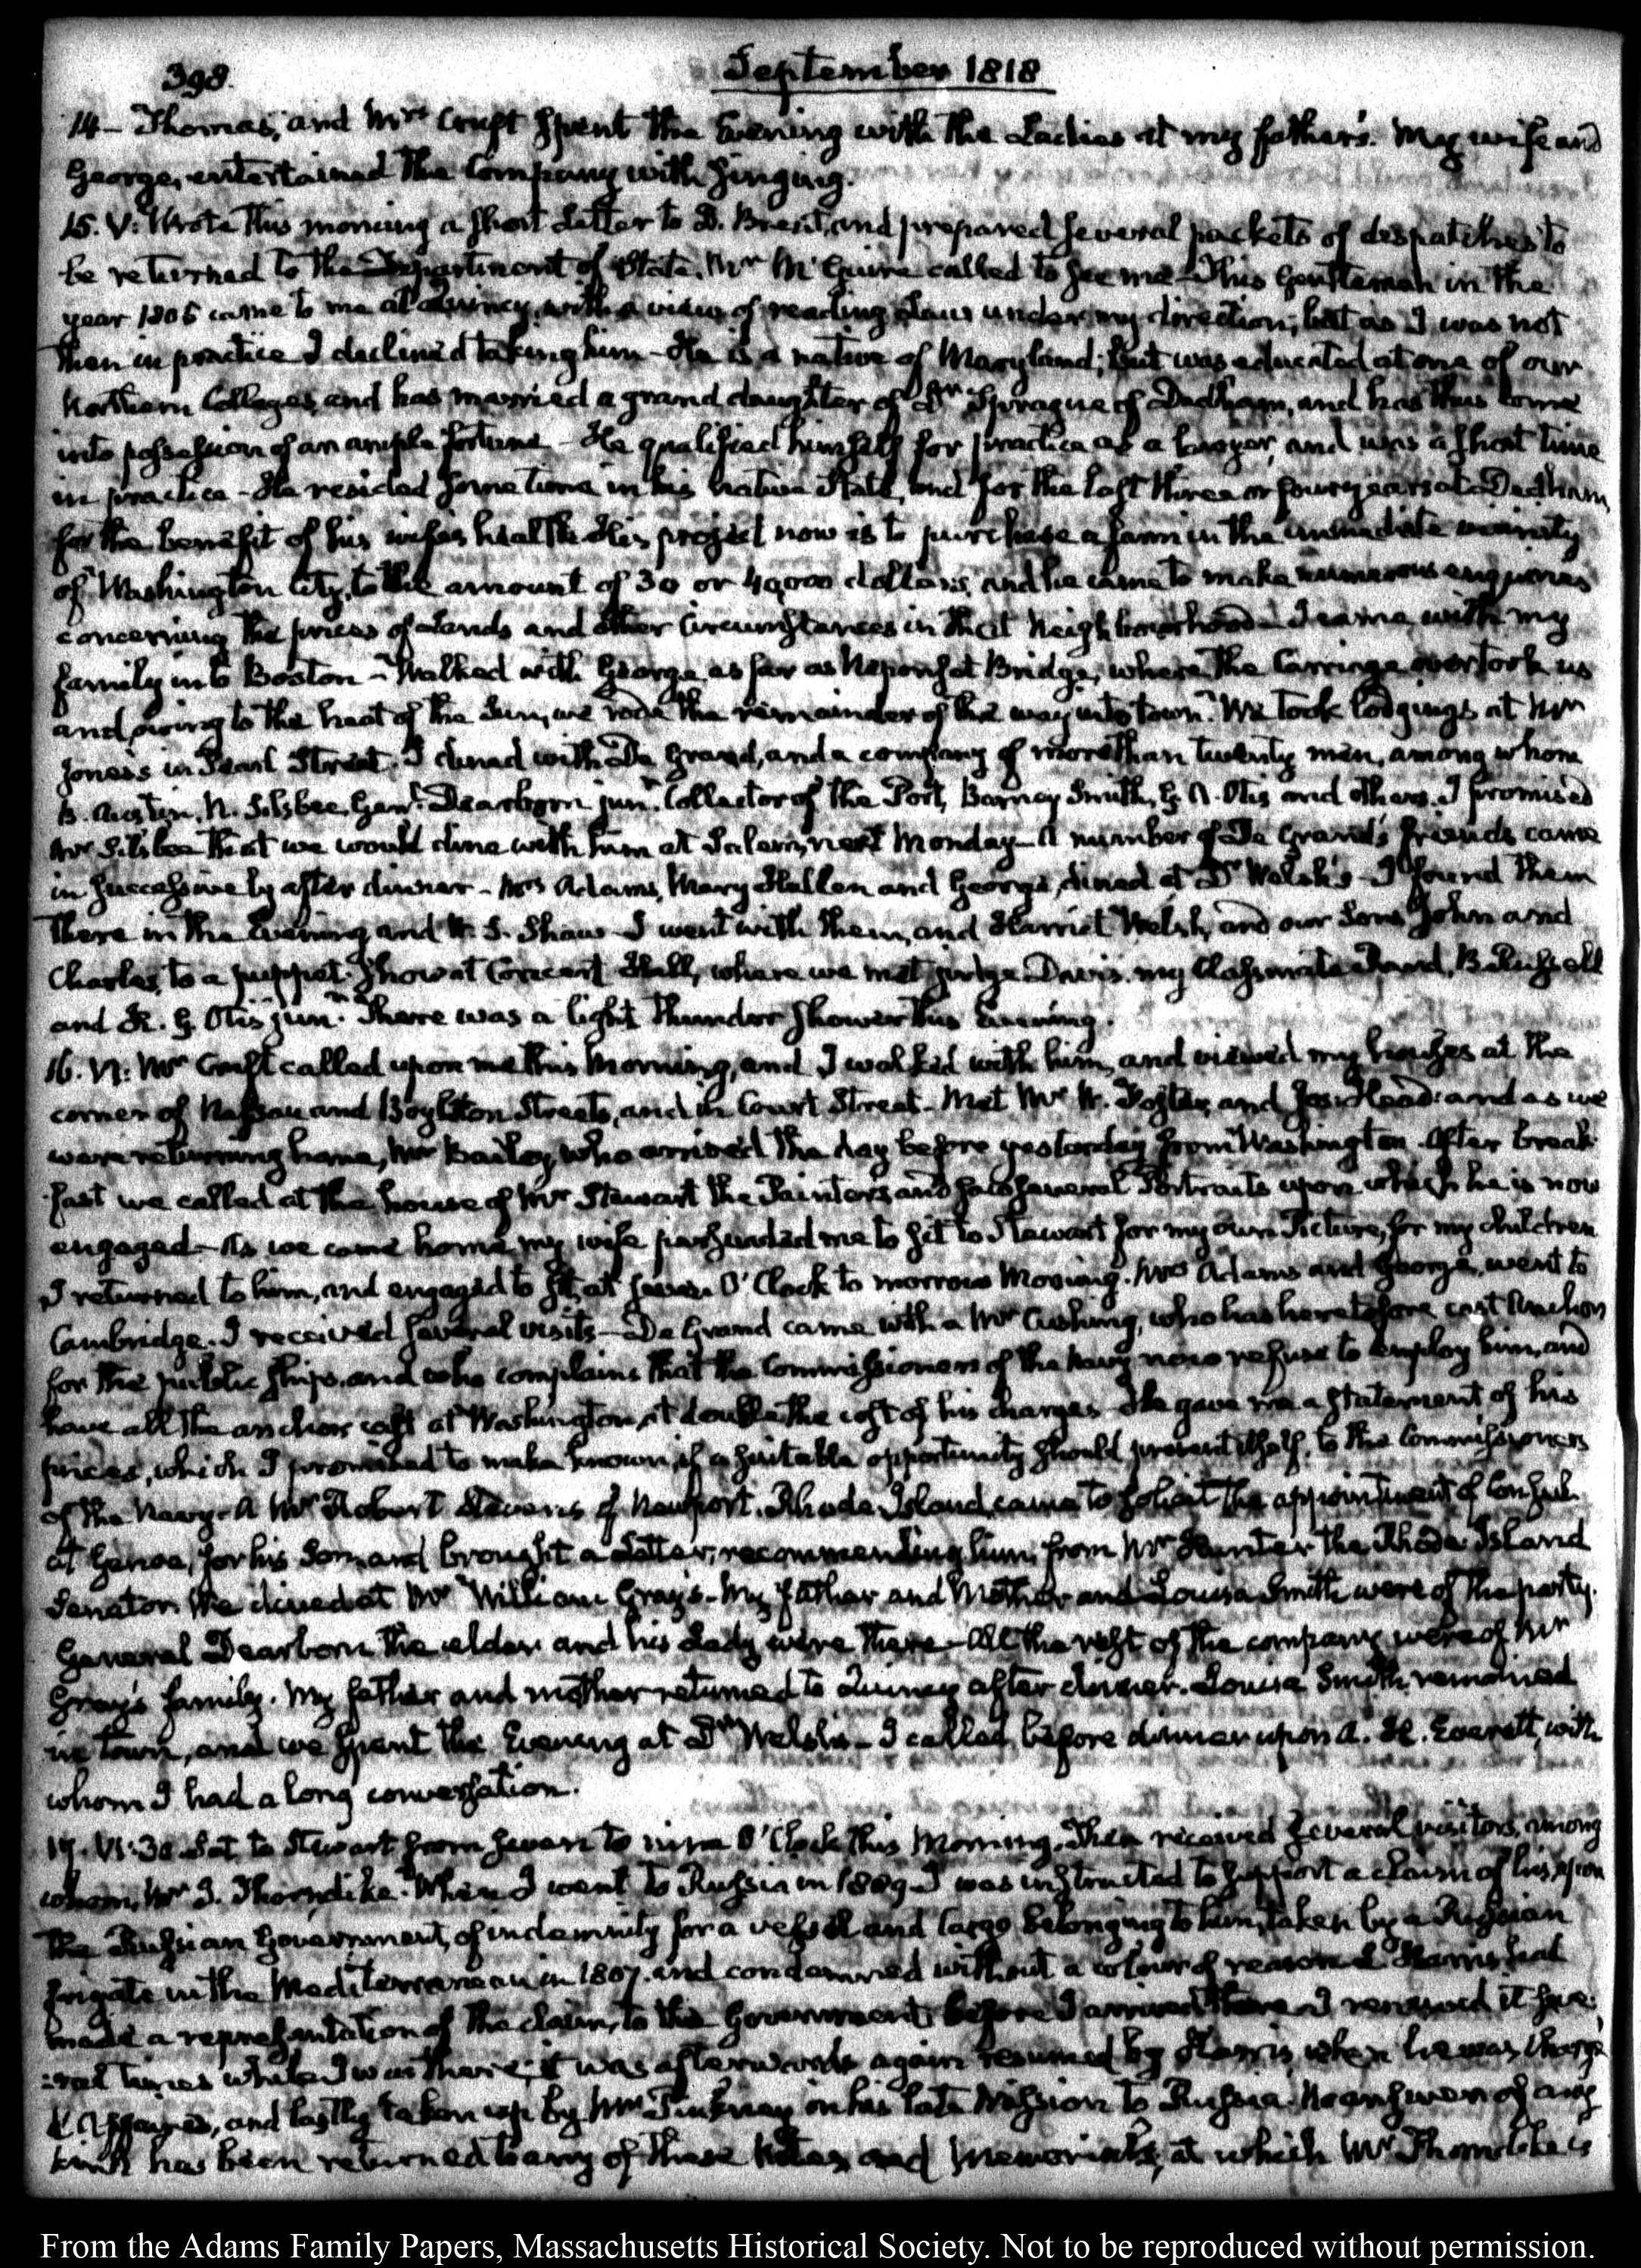 398.
September 1818
14– Thomas, and Mrs Cruft spent the Evening with the Ladies at my father's. My wife and
George, entertained the Company with singing.
15. V: Wrote this morning a short Letter to D. Brent, and prepared several packets of despatches to
be returned to the Department of State. Mr McGuire called to see me– This Gentleman in the
year 1805 came to me at Quincy, with a view of reading Law under my direction; but as I was not
then in practice I declined taking him– He is a native of Maryland; but was educated at one of our
Northern Colleges, and has married a grand daughter of Dr Sprague of Dedham, and has thus come
into possession of an ample fortune– He qualified himself for practice as a lawyer, and was a short time
in practice– He resided some time in his native State, and for the last three or four years at Dedham,
for the benefit of his wife's health. His project now is to purchase a farm in the immediate vicinity
of Washington City, to the amount of 30 or 40,000 dollars, and he came to make numerous enquiries
concerning the prices of Lands and other Circumstances in that Neighbourhood– I came with my
family into Boston– Walked with George as far as Neponset Bridge, where the Carriage overtook us
and owing to the heat of the Sun, we rode the remainder of the way into town. We took lodgings at Mrs
Jones's in Pearl Street. I dined with De Grand, and a company of more than twenty men, among whom
B. Austin, N. Silsbee, Genl. Dearborn junr. Collector of the Port, Barney Smith, G. A. Otis and others. I promised
Mr Silsbee that we would dine with him at Salem, next Monday– A number of De Grand's friends came
in successively after dinner– Mrs Adams, Mary Hellen and George, dined at Dr Welsh's– I found them
there in the Evening and W. S. Shaw– I went with them, and Harriet Welsh, and our Sons John and
Charles, to a puppet-show at Concert Hall, where we met judge Davis. my Classmate B. Russell
and H. G. Otis junr. There was a light thunder shower this Evening.
16. VI: Mr Cruft called upon me this Morning, and I walked with him, and viewed my houses at the
corner of Nassau and Boylston Streets, and in Court Street– Met Mr W. Foster, and Jos: Head: and as we
were returning home, Mr Bailey, who arrived the day before yesterday from Washington. After break-
fast we called at the house of Mr Stewart the Painter, and saw several Portraits upon which he is now
engaged– As we came home my wife persuaded me to sit to Stewart for my own Picture, for my children
I returned to him, and engaged to sit, at seven O'Clock to morrow Morning. Mrs Adams and George, went to
Cambridge. I received several visits– De Grand came with a Mr Cushing, who has heretofore cast Anchors
for the public ships, and who complains that the Commissioners of the Navy now refuse to employ him, and
have all the anchors cast at Washington, at double the cost of his charges– He gave me a statement of his
prices, which I promised to make known, if a suitable opportunity should present itself, to the Commissioners
of the Navy– A Mr Robert Stevens of Newport, Rhode Island, came to solicit the appointment of Consul
at Genoa, for his Son, and brought a Letter, recommending him, from Mr Hunter the Rhode-Island
Senator. We dined at Mr William Gray's– My father and Mother and Louisa Smith were of the party.
General Dearborn the elder and his Lady were there– All the rest of the company were of Mr
Gray's family. My father and mother returned to Quincy after dinner. Louisa Smith remained
in town, and we spent the Evening at Dr Welsh's– I called before dinner upon A. H. Everett, with
whom I had a long conversation.
17. VI:30. Sat to Stewart from seven to nine O'Clock this Morning. Then received several visitors, among
whom, Mr I. Thorndike. When I went to Russia in 1809 I was instructed to support a claim of his, upon
the Russian Government, of indemnity for a vessel and Cargo belonging to him, taken by a Russian
frigate in the Mediterranean in 1807. and condemned without a colour of reason. Harris had
made a representation of the claim, to the Government, before I arrived there– I renewed it seve-
:ral times while I was there; it was afterwards again resumed by Harris, when he was Chargé
d'Affaires, and lastly taken up by Mr Pinkney in his late Mission to Russia. No answer of any
kind has been returned to any of these Notes and Memorials, at which Mr Thorndike is